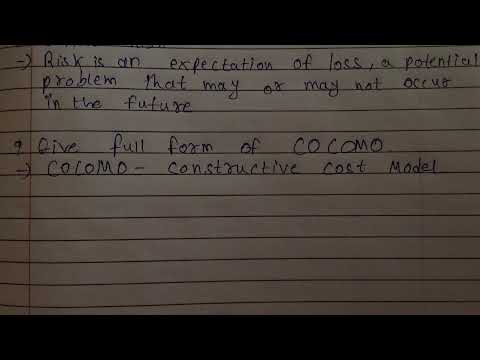 → Risk is an expectation of loss, a potential
problem that may or may not occur
in the future
9 Give full form of COCOMO.
→ COCOMO - Constructive cost Model